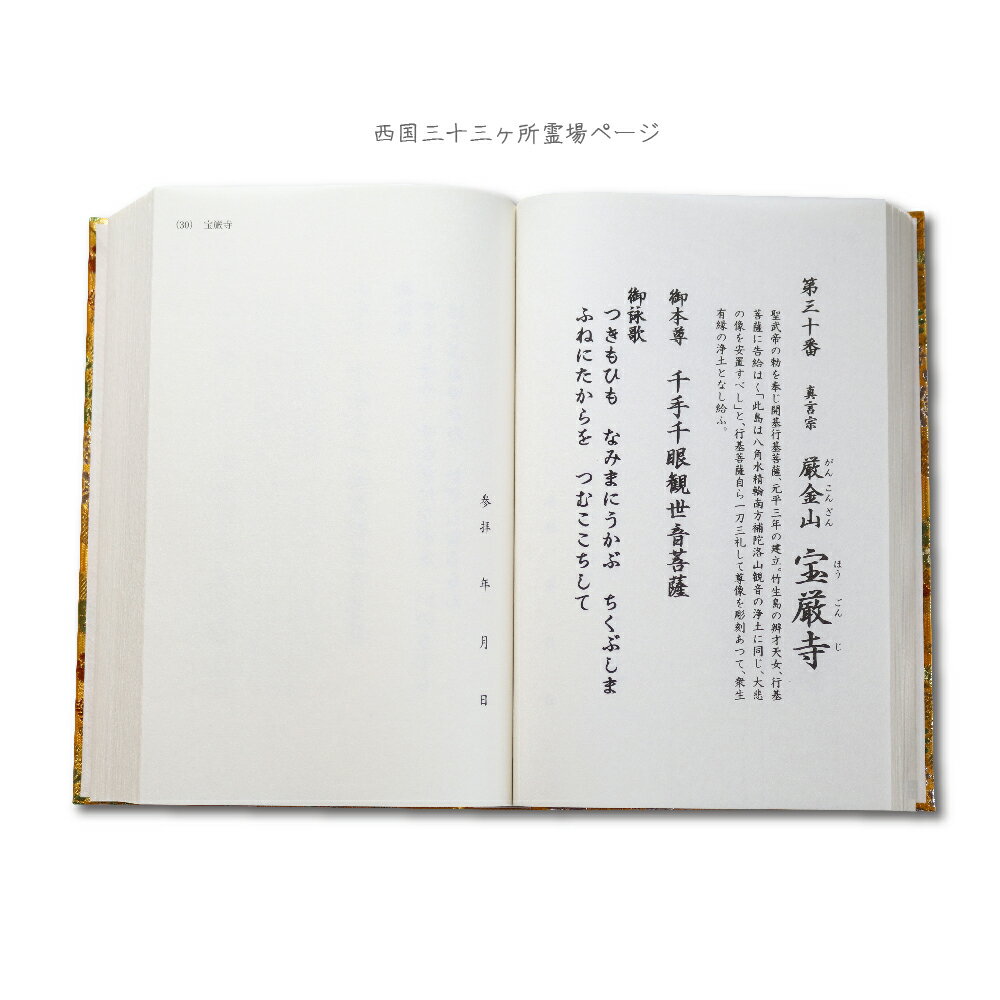 西国三十三ヶ所霊場ページ
第三十番 真言宗 厳金山 宝厳寺
がんこんざん ほうごんじ
聖武帝の勅を奉じ開基行基菩薩、元平三年の建立。竹生島の辨才天女、行基
菩薩に告給はく「此島は八角水精輪南方補陀洛山観音の浄土に同じ、大悲
の像を安置すべし」と、行基菩薩自ら一刀三礼して尊像を彫刻あつて、衆生
有縁の浄土となし給ふ。
御本尊 千手千眼観世音菩薩
御詠歌
つきもひも なみまにうかぶ ちくぶしま
ふねにたからを つむここちして
(30) 宝厳寺
参拝 年 月 日